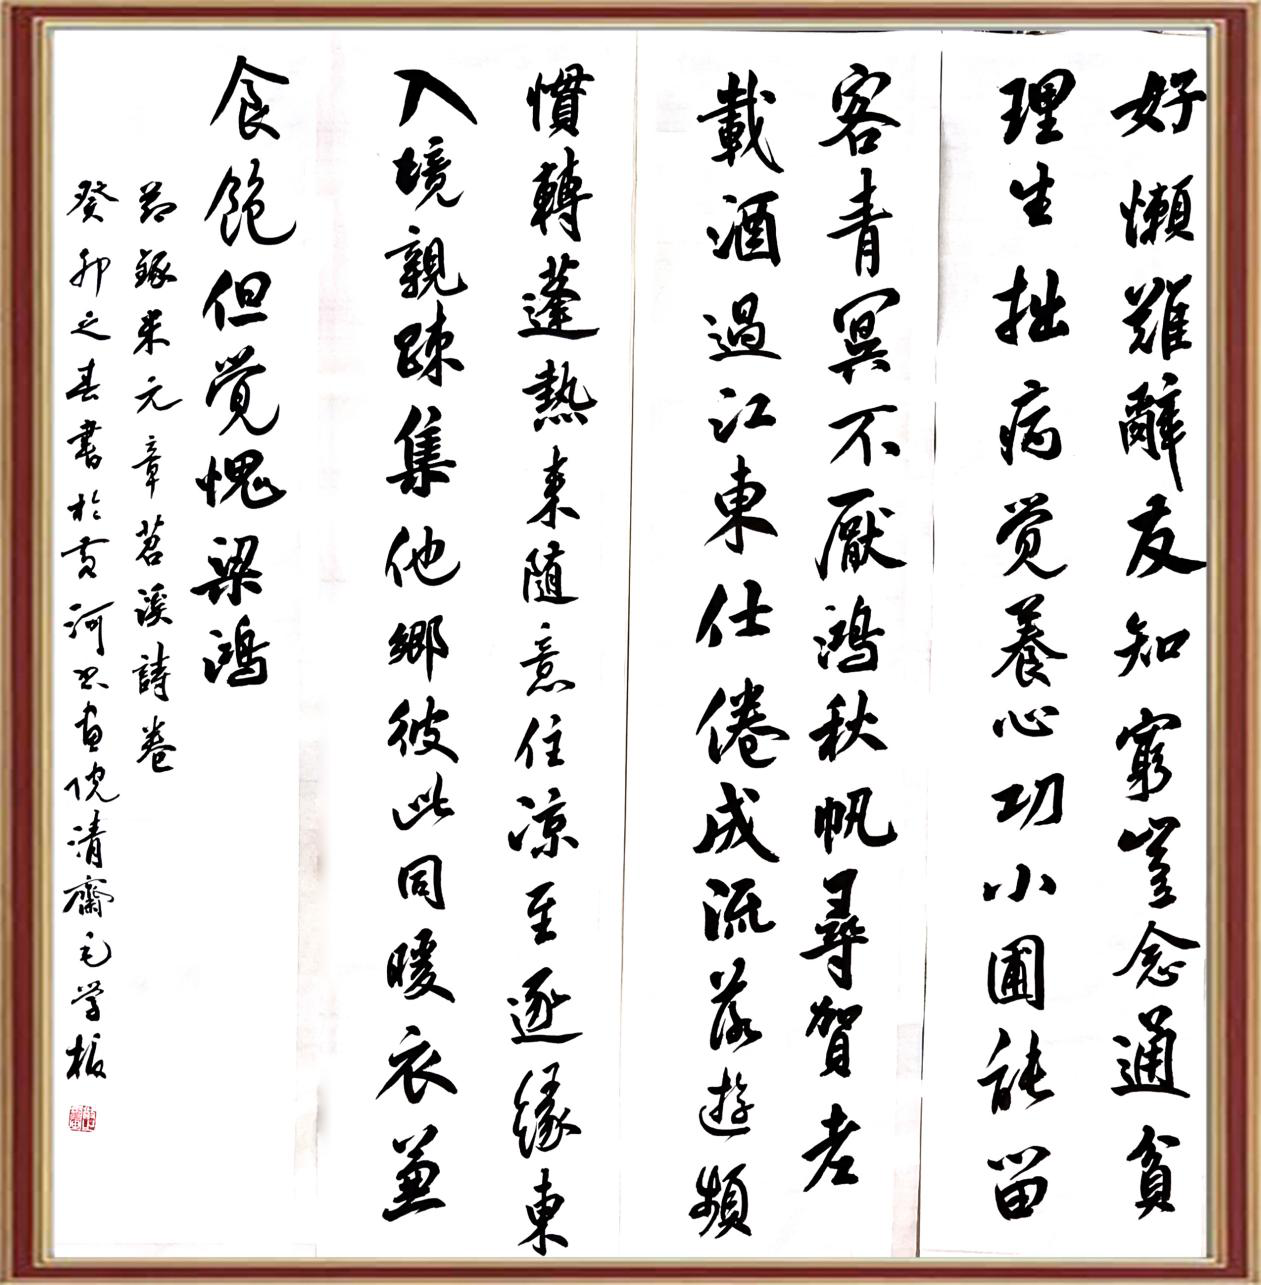 好懶難辭友知窮豈念通貧
理生拙病觉養心功小圃能留
客青冥不厭鴻秋帆尋賀老
載酒過江東仕倦成流落遊頻
慣轉蓬熱来随意住凉至逐緣東
入境親疎集他鄉彼此同暖衣兼
食飽但觉愧梁鴻
节錄米元章苕溪詩卷
癸卯之春書於黄河书画院清齋毛学